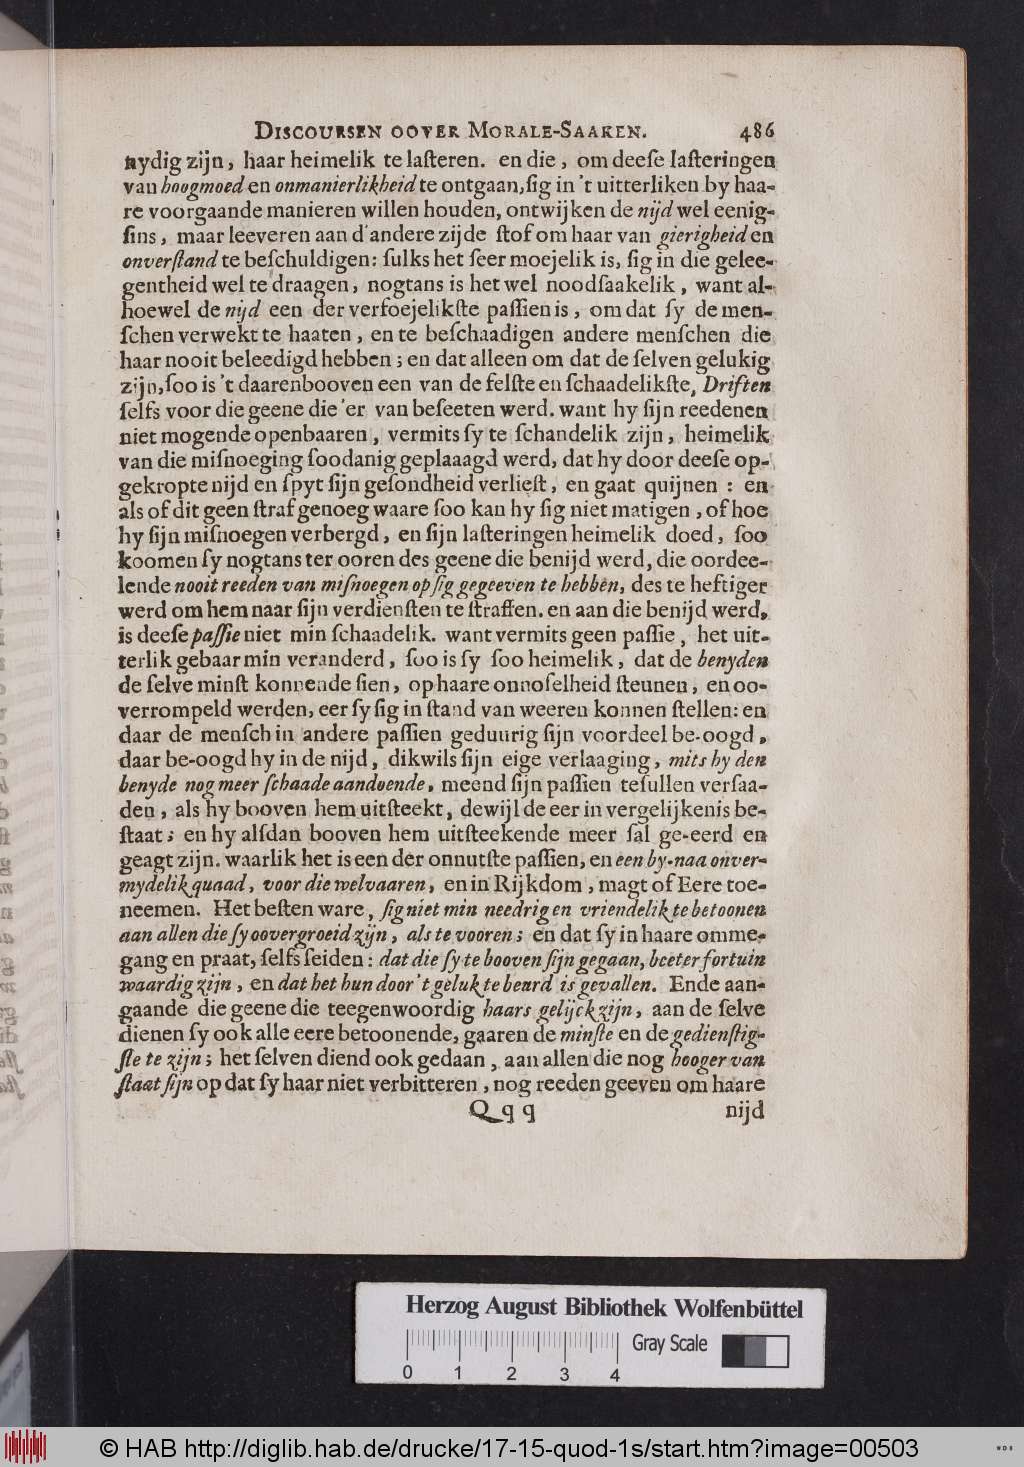 DISCOURSEN OOVER MORALE-SAAKEN. 486
nydig zijn, haar heimelik te laſteren. en die, om deeſe laſteringen
van hoogmoed en onmanierlikheid te ontgaan, ſig in 't uitterliken by haa-
re voorgaande manieren willen houden, ontwijken de nijd wel eenig-
ſins, maar leeveren aan d'andere zijde ſtof om haar van gierigheid en
onverſtand te beſchuldigen: ſulks het ſeer moejelik is, ſig in die gelee-
gentheid wel te draagen, nogtans is het wel noodſaakelik, want al-
hoewel de nijd een der verfoejelikſte paſſien is, om dat ſy de men-
ſchen verwekt te haaten, en te beſchaadigen andere menſchen die
haar nooit beleedigd hebben; en dat alleen om dat de ſelven gelukig
zijn, ſoo is 't daarenbooven een van de felſte en ſchaadelikſte, Driften
ſelfs voor die geene die 'er van beſeeten werd. want hy ſijn reedenen
niet mogende openbaaren, vermits ſy te ſchandelik zijn, heimelik
van die miſnoeging ſoodanig geplaaagd werd, dat hy door deeſe op-
gekropte nijd en ſpyt ſijn geſondheid verlieſt, en gaat quijnen: en
als of dit geen ſtraf genoeg waare ſoo kan hy ſig niet matigen, of hoe
hy ſijn miſnoegen verbergd, en ſijn laſteringen heimelik doed, ſoo
koomen ſy nogtans ter ooren des geene die benijd werd, die oordee-
lende nooit reeden van miſnoegen op ſig gegeeven te hebben, des te heftiger
werd om hem naar ſijn verdienſten te ſtraffen. en aan die benijd werd,
is deeſe paſſie niet min ſchaadelik. want vermits geen paſſie, het uit-
terlik gebaar min veranderd, ſoo is ſy ſoo heimelik, dat de benyden
de ſelve minſt konnende ſien, op haare onnoſelheid ſteunen, en oo-
verrompeld werden, eer ſy ſig in ſtand van weeren konnen ſtellen: en
daar de menſch in andere paſſien geduurig ſijn voordeel be-oogd,
daar be-oogd hy in de nijd, dikwils ſijn eige verlaaging, mits hy den
benyde nog meer ſchaade aandoende, meend ſijn paſſien teſullen verſaa-
den, als hy booven hem uitſteekt, dewijl de eer in vergelijkenis be-
ſtaat; en hy alſdan booven hem uitſteekende meer ſal ge-eerd en
geagt zijn. waarlik het is een der onnutſte paſſien, en een by-naa onver-
mydelik quaad, voor die welvaaren, en in Rijkdom, magt of Eere toe-
neemen. Het beſten ware, ſig niet min needrig en vriendelik te betoonen
aan allen die ſy oovergroeid zijn, als te vooren; en dat ſy in haare omme-
gang en praat, ſelfs ſeiden: dat die ſy te booven ſijn gegaan, beeter fortuin
waardig zijn, en dat het hun door 't geluk te beurd is gevallen. Ende aan-
gaande die geene die teegenwoordig haars gelijck zijn, aan de ſelve
dienen ſy ook alle eere betoonende, gaaren de minſte en de gedienſtig-
ſte te zijn; het ſelven diend ook gedaan, aan allen die nog hooger van
ſtaat ſijn op dat ſy haar niet verbitteren, nog reeden geeven om haare
Qqq nijd
Herzog August Bibliothek Wolfenbüttel
Gray Scale
0 1 2 3 4
© HAB http://diglib.hab.de/drucke/17-15-quod-1s/start.htm?image=00503